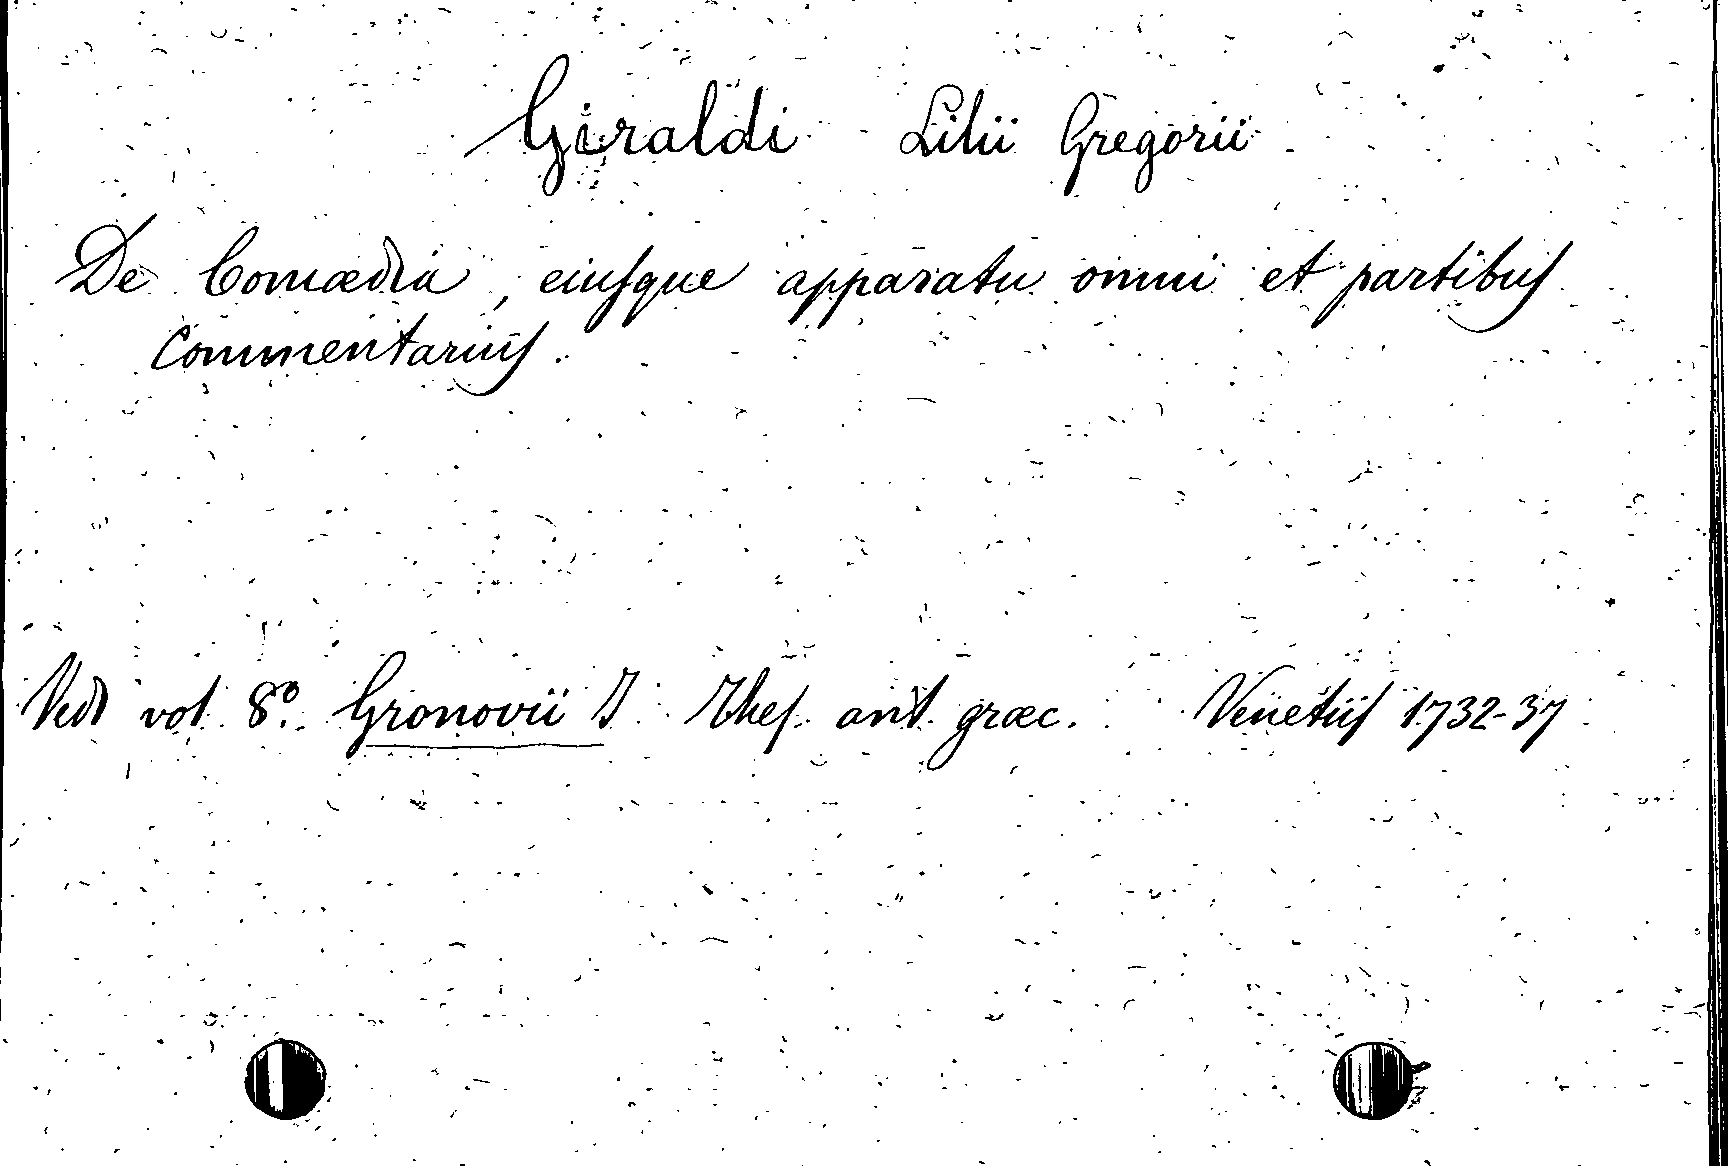 Giraldi Lilii Gregorii
De Comœdia, eiusque apparatu omni et partibus
Commentarius.
Vedi vol. 8º. Gronovii I. Thes. ant. græc. Venetiis 1732-37